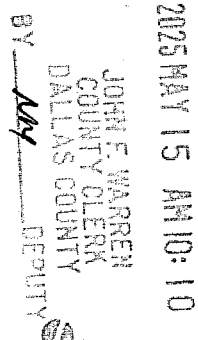 2025 MAY 15 AM 10:10
JOHN F. WARREN
COUNTY CLERK
DALLAS COUNTY
BY DEPUTY